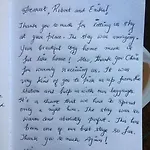 Robert and
Thank you so much for letting us stay
at your place. The stay was amazing.
Your beautiful cozy home made it
feel like home! Also, thank you
for warmly receiving us. It was
very kind of you to pick us up from the
station and help us with our luggage.
It's a shame that we have to spend
only 1 night here. The stay was so
warm and absolutely great. This has
been one of our best stay so far.
Thank you so much again.